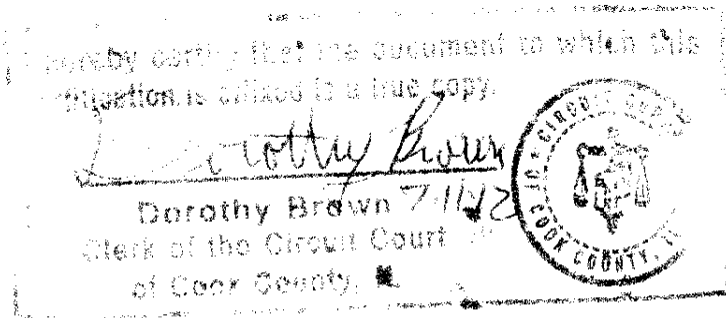 hereby certify that the document to which this
certification is affixed is a true copy.
Dorothy Brown
Dorothy Brown 7-11-12
Clerk of the Circuit Court
of Cook County,
CIRCUIT COURT
COOK COUNTY,